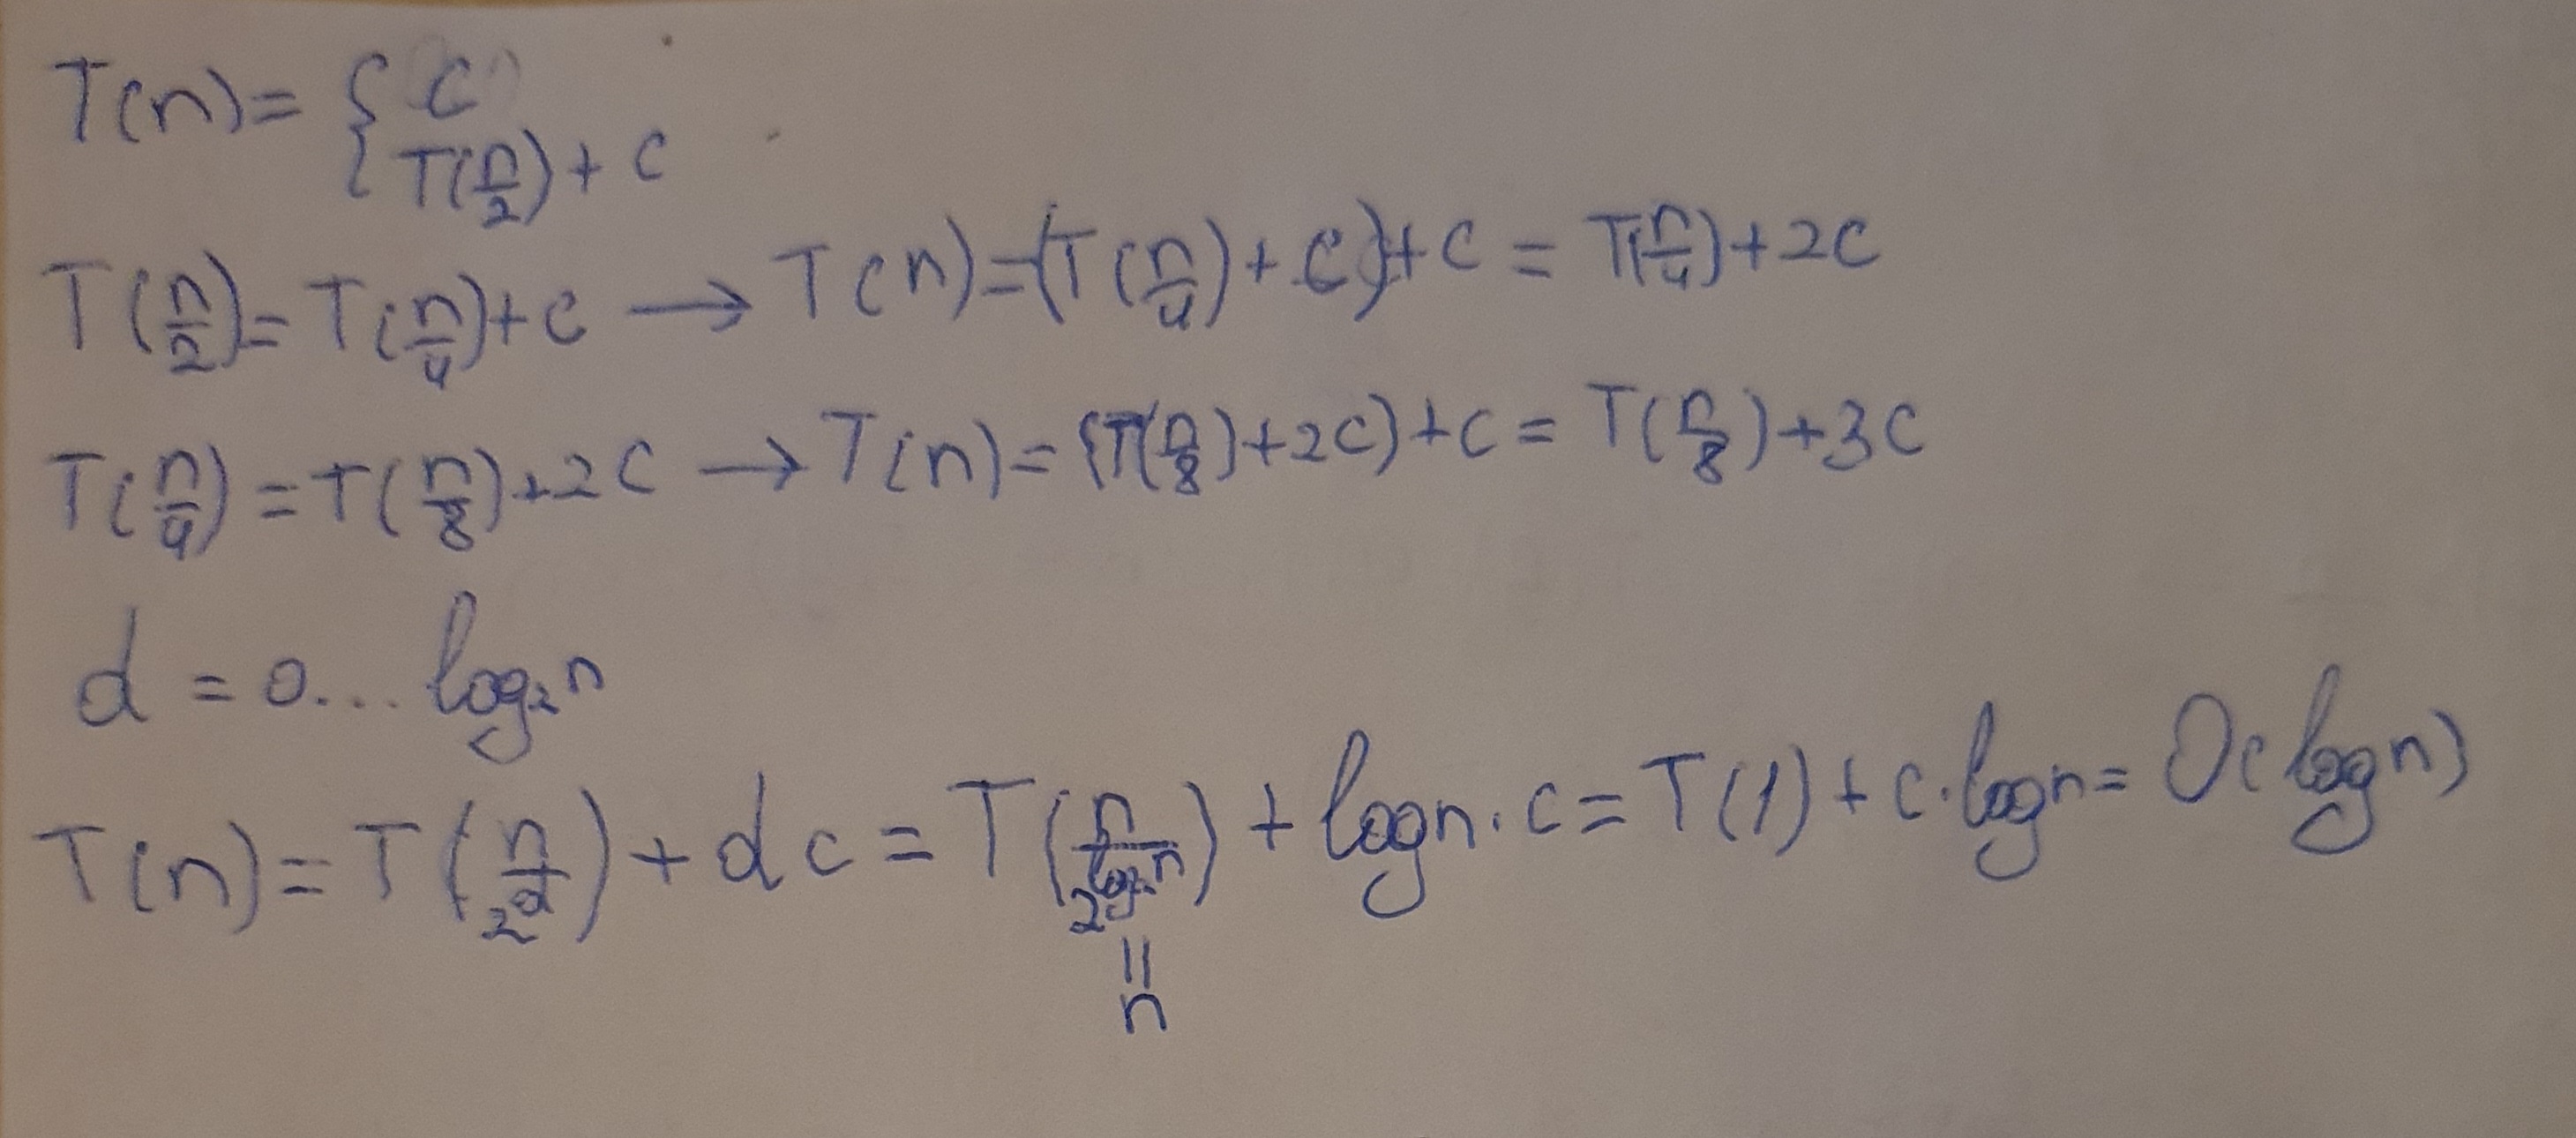 T(n) = { C
{ T(n/2) + C
T(n/2) = T(n/4) + C → T(n) = (T(n/4) + C) + C = T(n/4) + 2C
T(n/4) = T(n/8) + 2C → T(n) = (T(n/8) + 2C) + C = T(n/8) + 3C
d = 0... log₂n
T(n) = T(n/2^d) + dc = T(n/2^(log₂n)) + logn · c = T(1) + c · logn = O(logn)
||
n